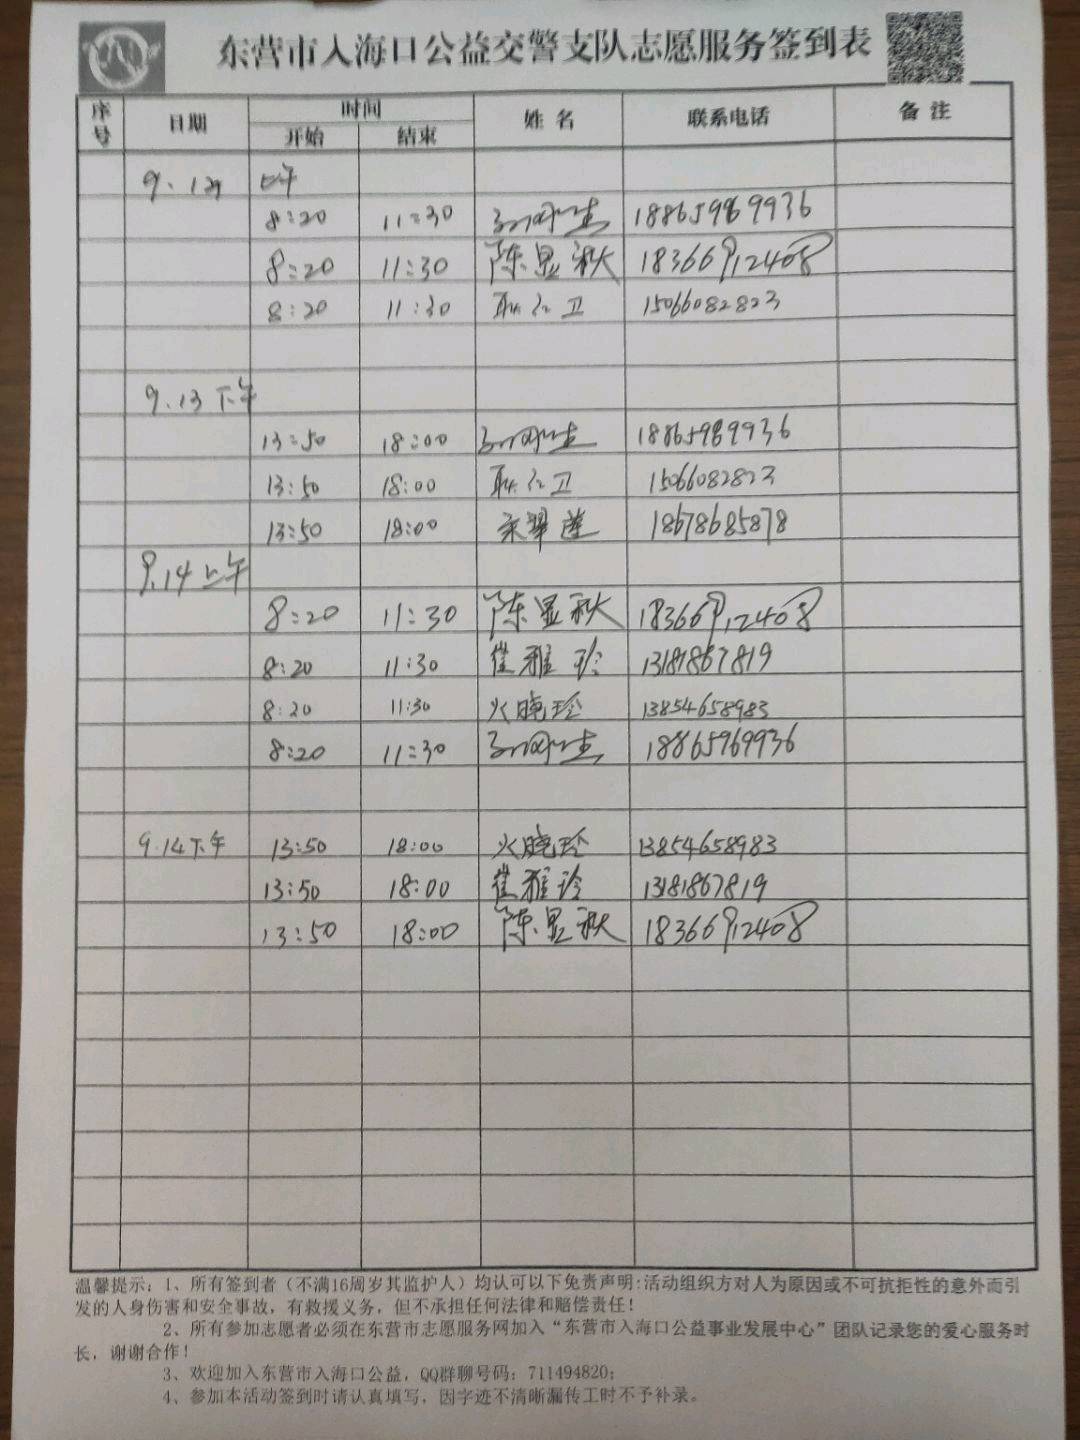 东营市入海口公益交警支队志愿服务签到表
序号 日期 时间 姓名 联系电话 备注
开始 结束
9.13 上午
8:20 11:30 18865969936
8:20 11:30 陈显秋 18366912408
8:20 11:30 耿红卫 15066082823
9.13下午
13:50 18:00 18865969936
13:50 18:00 耿红卫 15066082823
13:50 18:00 宋翠莲 18678685878
9.14上午
8:20 11:30 陈显秋 18366912408
8:20 11:30 崔雅玲 13181867819
8:20 11:30 火晓玲 13854658983
8:20 11:30 18865969936
9.14下午 13:50 18:00 火晓玲 13854658983
13:50 18:00 崔雅玲 13181867819
13:50 18:00 陈显秋 18366912408
温馨提示：1、所有签到者（不满16周岁其监护人）均认可以下免责声明:活动组织方对人为原因或不可抗拒性的意外而引
发的人身伤害和安全事故，有救援义务，但不承担任何法律和赔偿责任！
2、所有参加志愿者必须在东营市志愿服务网加入“东营市入海口公益事业发展中心”团队记录您的爱心服务时
长，谢谢合作！
3、欢迎加入东营市入海口公益，QQ群聊号码：711494820；
4、参加本活动签到时请认真填写，因字迹不清晰漏传工时不予补录。